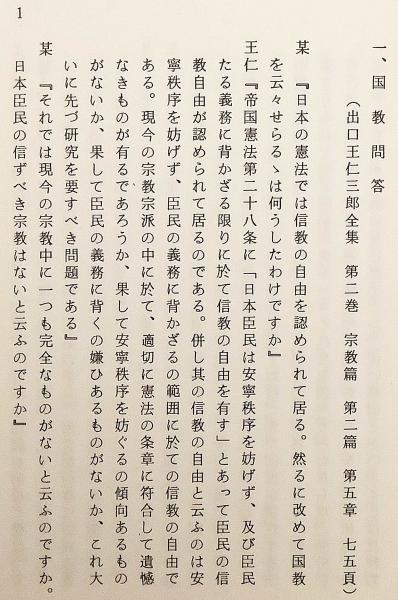 1
一、国教問答
(出口王仁三郎全集　第二巻　宗教篇　第二篇　第五章　七五頁)
某　『日本の憲法では信教の自由を認められて居る。然るに改めて国教
を云々せらるゝは何うしたわけですか』
王仁『帝国憲法第二十八条に「日本臣民は安寧秩序を妨げず、及び臣民
たる義務に背かざる限りに於て信教の自由を有す」とあって臣民の信
教自由が認められて居るのである。併し其の信教の自由と云ふのは安
寧秩序を妨げず、臣民の義務に背かざるの範囲に於ての信教の自由で
ある。現今の宗教宗派の中に於て、適切に憲法の条章に符合して遺憾
なきものが有るであろうか、果して安寧秩序を妨ぐるの傾向あるもの
がないか、果して臣民の義務に背くの嫌ひあるものがないか、これ大
いに先づ研究を要すべき問題である』
某　『それでは現今の宗教中に一つも完全なものがないと云ふのですか。
日本臣民の信ずべき宗教はないと云ふのですか』